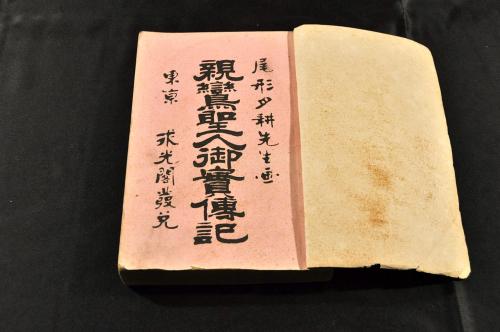 尾形月耕先生画
親鸞聖人御實傳記
東京 求光閣發兌